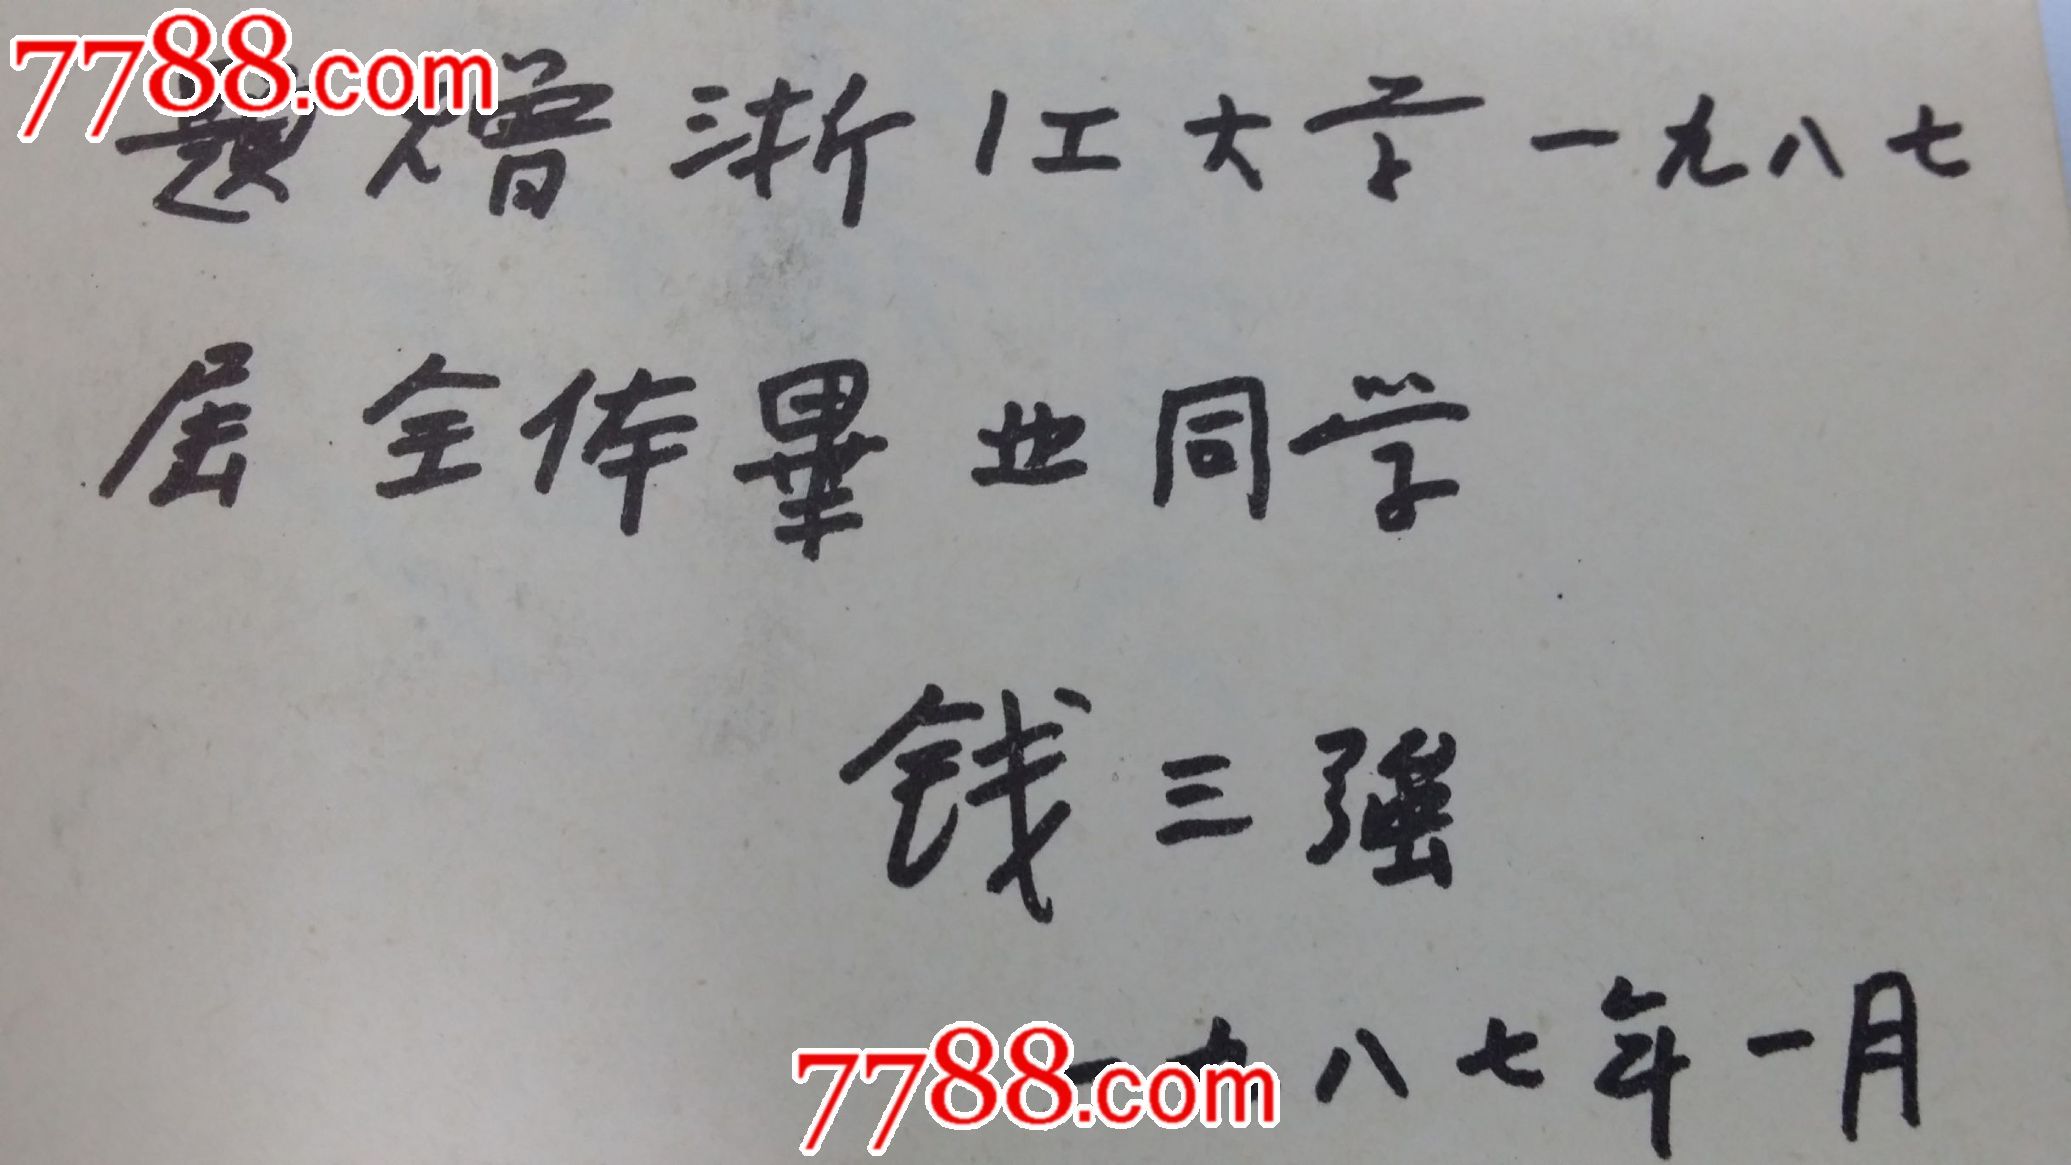 7788.com
题赠浙江大学一九八七
届全体畢业同学
钱三強
一九八七年一月
7788.com